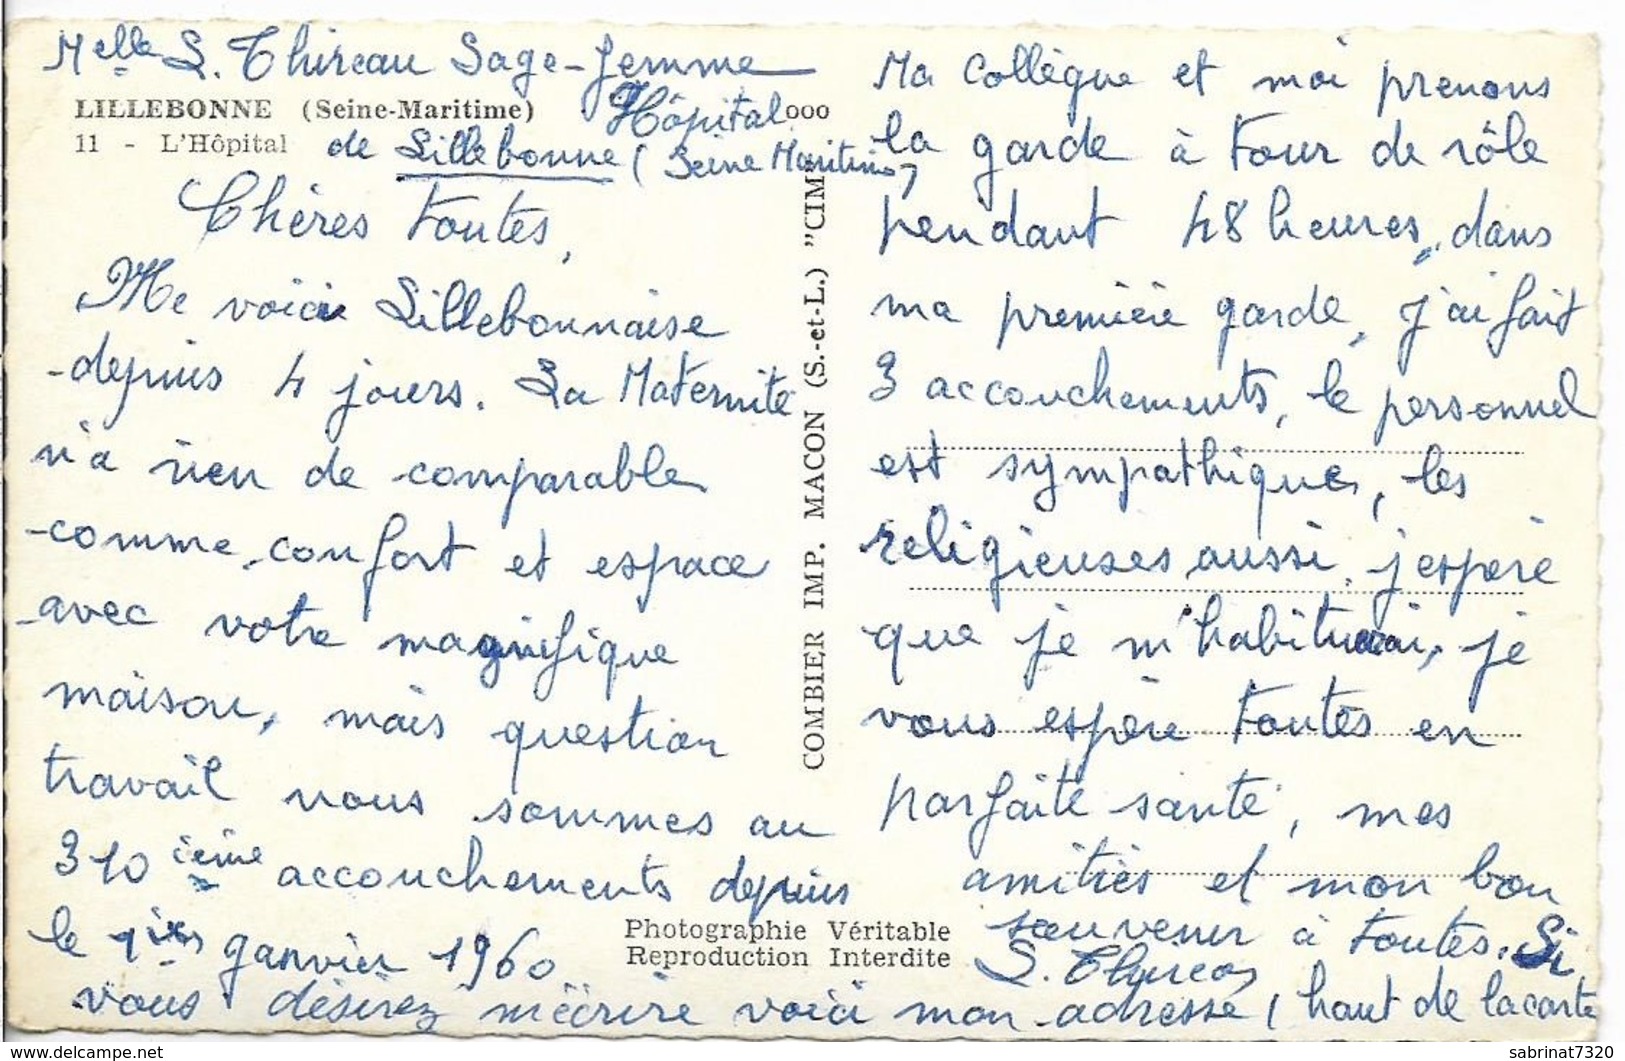 Melle S. Thireau Sage-femme
LILLEBONNE (Seine-Maritime)
Hôpital
ooo
11 - L'Hôpital
de Lillebonne (Seine Maritime)
Chères toutes,
Me voici Lillebonnaise
depuis 4 jours. La Maternité
n'a rien de comparable
comme confort et espace
avec votre magnifique
maison, mais question
travail nous sommes au
310 ième accouchements depuis
le 1ier janvier 1960
COMBIER IMP. MACON (S.-et-L.) "CIM"
Photographie Véritable
Reproduction Interdite
Ma collègue et moi prenons
la garde à tour de rôle
pendant 48 heures, dans
ma première garde, j'ai fait
3 accouchements, le personnel
est sympathique, les
religieuses aussi, j'espère
que je m'habituerai, je
vous espère toutes en
parfaite santé, mes
amitiés et mon bon
souvenir à toutes. Si
S. Thireau
vous désirez m'écrire voici mon adresse (haut de la carte
sabrinat7320